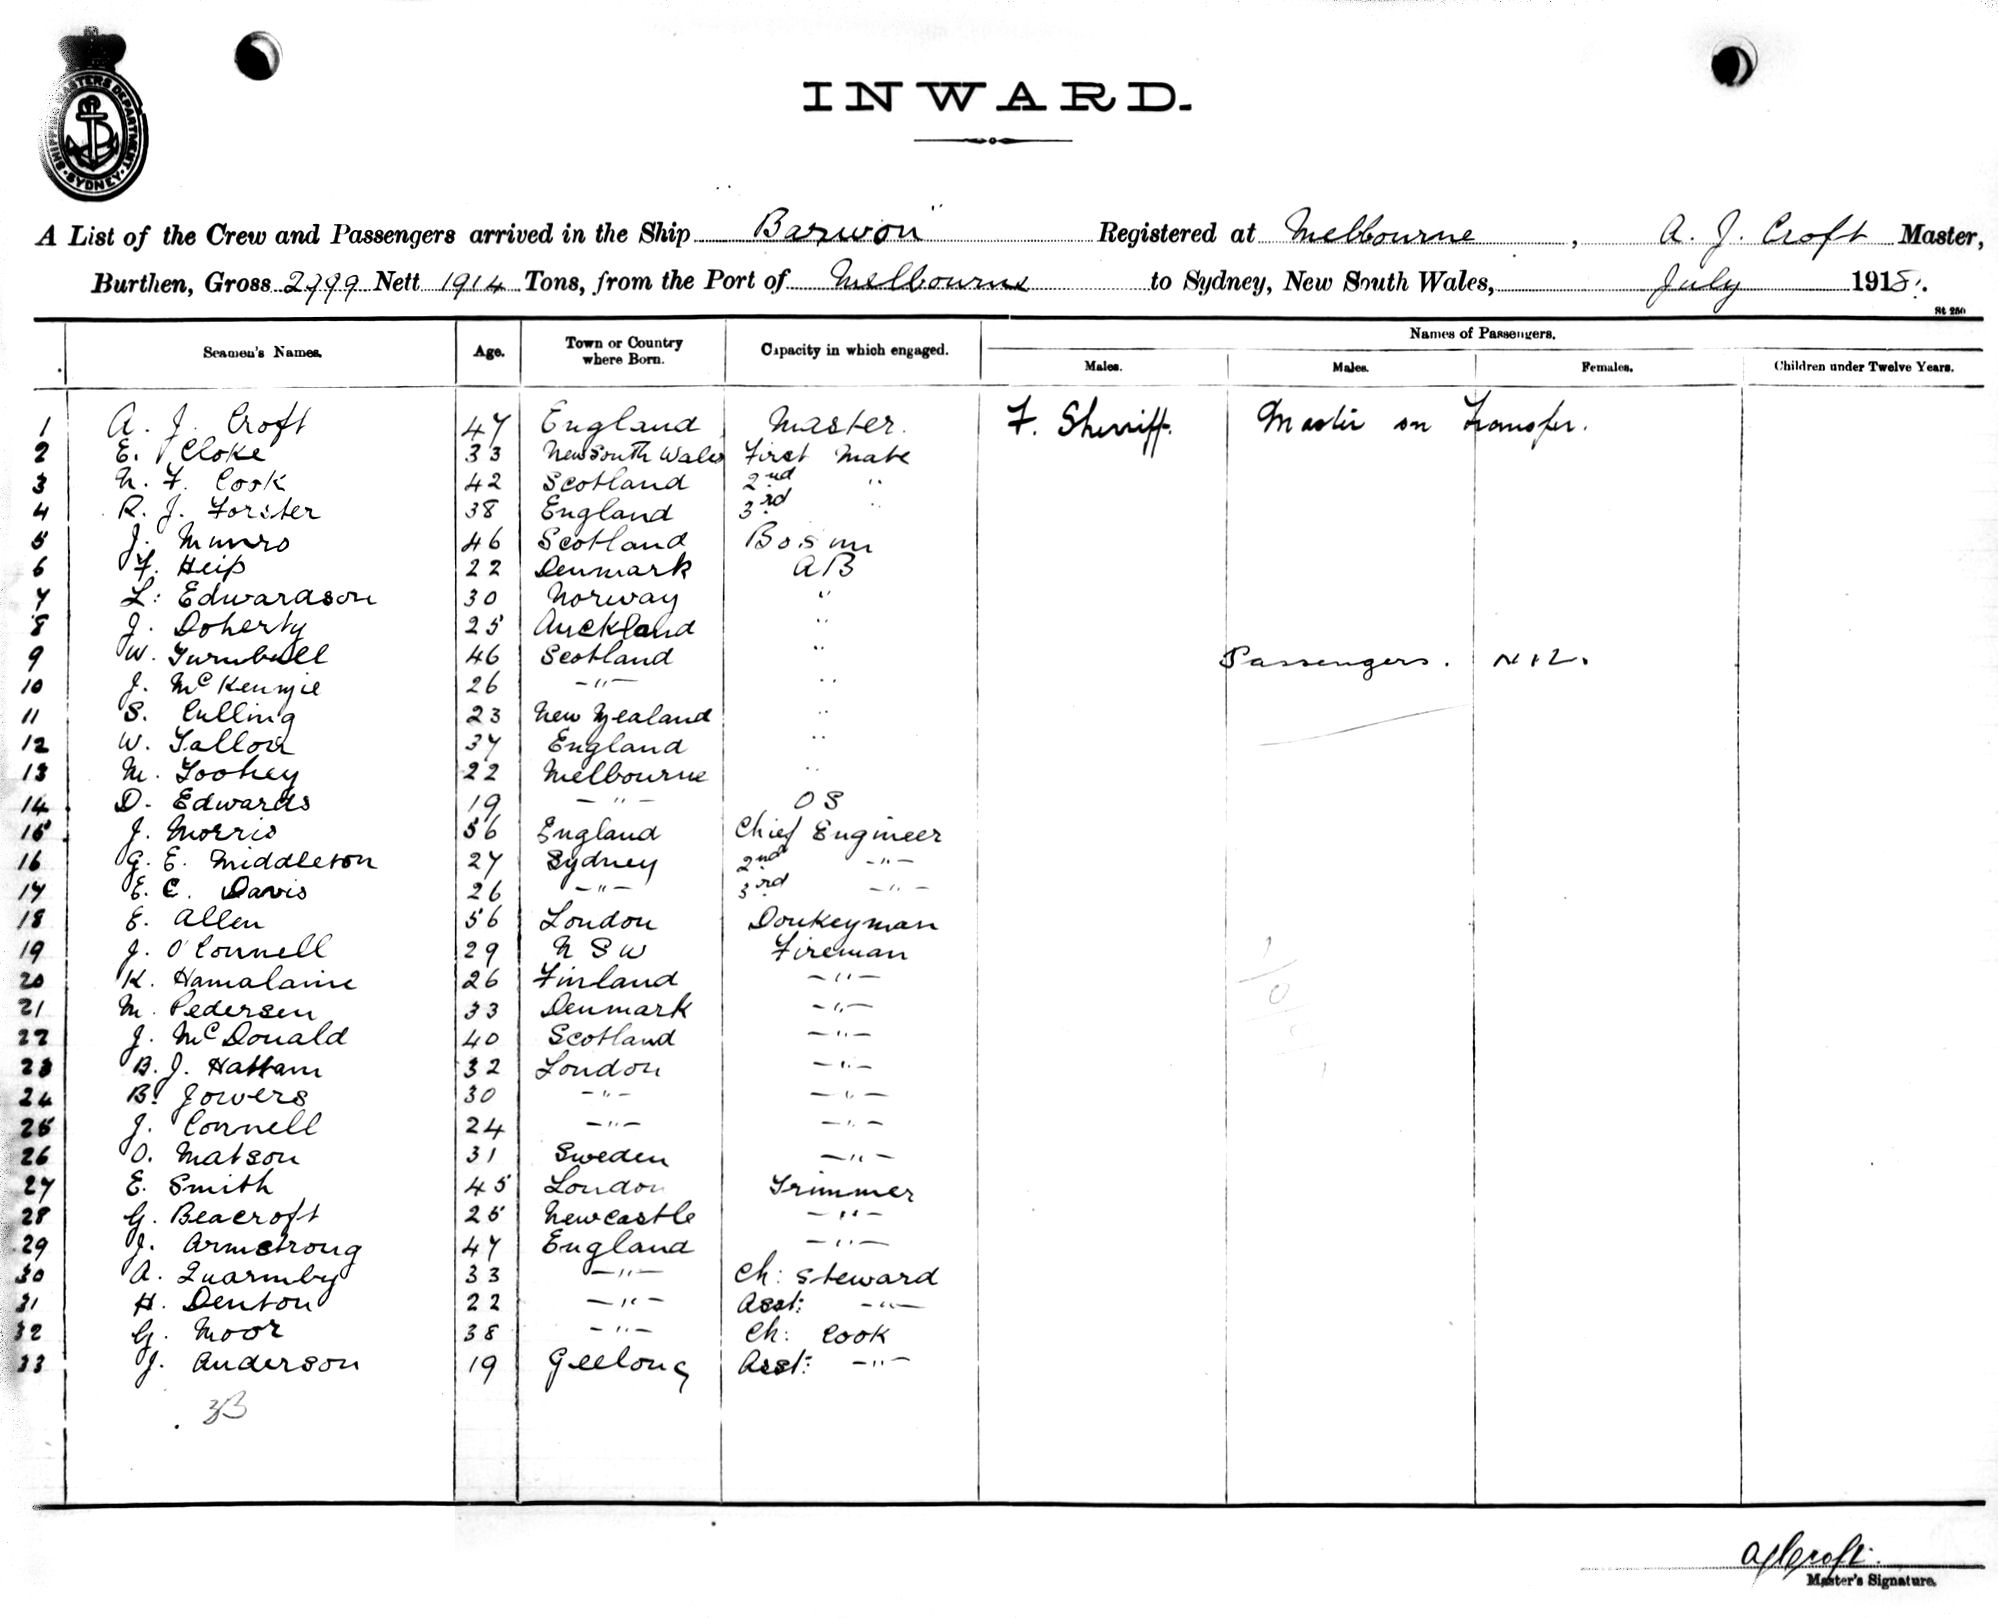 SHIPPING MASTERS DEPARTMENT · SYDNEY ·
INWARD.
A List of the Crew and Passengers arrived in the Ship Barwon Registered at Melbourne, A. J. Croft Master,
Burthen, Gross Nett 1914 Tons, from the Port of Melbourne to Sydney, New South Wales, July 1918.
St 250
Seamen's Names. Age. Town or Country where Born. Capacity in which engaged. Names of Passengers.
Males. Males. Females. Children under Twelve Years.
1 A. J. Croft 47 England Master. F. Sherriff. Master on Transfer.
2 E. Cloke 33 New South Wales First Mate
3 N. F. Cook 42 Scotland 2nd "
4 R. J. Forster 38 England 3rd "
5 J. Munro 46 Scotland Bosun
6 F. Heip 22 Denmark AB
7 L. Edwardson 30 Norway "
8 J. Doherty 25 Auckland "
9 W. Turnbull 46 Scotland " Passengers. NIL.
10 J. McKenzie 26 -"- "
11 S. Culling 23 New Zealand "
12 W. Tallon 37 England "
13 M. Toohey 22 Melbourne "
14 D. Edwards 19 -"- OS
15 J. Morris 56 England Chief Engineer
16 G. E. Middleton 27 Sydney 2nd -"-
17 E. C. Davis 26 -"- 3rd -"-
18 E. Allen 56 London Donkeyman
19 J. O'Connell 29 NSW Fireman
20 K. Hamalaine 26 Finland -"-
21 M. Pedersen 33 Denmark -"-
22 J. McDonald 40 Scotland -"-
23 B. J. Hattam 32 London -"-
24 B. Jowers 30 -"- -"-
25 J. Connell 24 -"- -"-
26 O. Matson 31 Sweden -"-
27 E. Smith 45 London Trimmer
28 G. Beacroft 25 Newcastle -"-
29 J. Armstrong 47 England -"-
30 A. Quarmby 33 -"- Ch: Steward
31 H. Denton 22 -"- Asst: -"-
32 G. Moor 38 -"- Ch: Cook
33 J. Anderson 19 Geelong Asst: -"-
33
AJCroft.
Master's Signature.